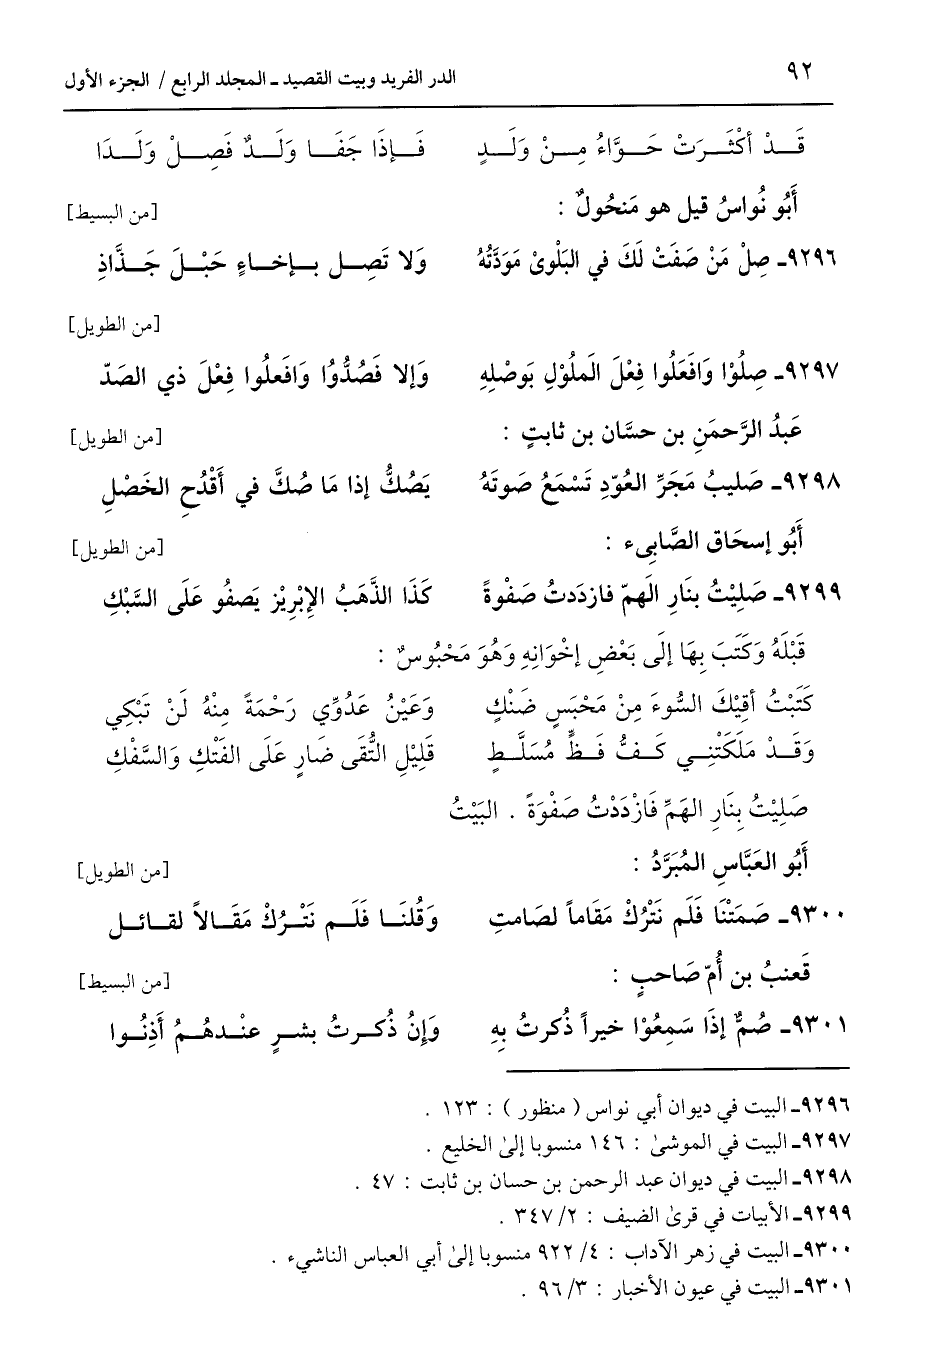 ٩٢ الدر الفريد وبيت القصيد ـ المجلد الرابع / الجزء الأول
قَدْ أَكْثَرَتْ حَوَّاءُ مِنْ وَلَدٍ فَإِذَا جَفَا وَلَدٌ فَصِلْ وَلَدَا
أَبُو نُواسُ قيل هو مَنحُولٌ : [من البسيط]
٩٢٩٦ـ صِلْ مَنْ صَفَتْ لَكَ في البَلْوىٰ مَوَدَّتُهُ وَلا تَصِل بإخاءٍ حَبْلَ جَذَّاذِ
[من الطويل]
٩٢٩٧ـ صِلُوْا وَافَعَلُوا فِعْلَ المَلُوْلِ بَوصْلِهِ وَإلا فَصُدُّوُا وَافعَلُوا فِعْلَ ذي الصَدّ
عَبدُ الرَّحمَنِ بن حسَّان بن ثابتٍ : [من الطويل]
٩٢٩٨ـ صَليبُ مَجَرِّ العُوّدِ تَسْمَعُ صَوتَهُ يَصُكُّ إذا مَا صُكَّ في أَقْدُحِ الخَصْلِ
أَبُو إسحَاق الصَّابِىء : [من الطويل]
٩٢٩٩ـ صَلِيْتُ بنَارِ الَهمّ فازدَدتُ صَفْوةً كَذَا الذَّهَبُ الإبْرِيْز يَصفُو عَلَى السَّبْكِ
قَبْلَهُ وَكَتَبَ بِهَا إلَى بَعْضِ إخْوَانِهِ وَهُوَ مَحْبُوسٌ :
كَتَبْتُ أقِيْكَ السُّوءَ مِنْ مَحْبَسٍ ضَنْكٍ وَعَيْنُ عَدُوِّي رَحْمَةً مِنْهُ لَنْ تَبْكِي
وَقَدْ مَلَكَتْنِي كَفُّ فَظٍّ مُسَلَّطٍ قَلِيْلِ التُّقَى ضَارٍ عَلَى الفَتْكِ وَالسَّفْكِ
صَلِيْتُ بِنَارِ الهَمِّ فَازْدَدْتُ صَفْوَةً . البَيْتُ
أَبُو العَبَّاسِ المُبَرَّدُ : [من الطويل]
٩٣٠٠ـ صَمَتْنَا فَلَم نَتْرُكْ مَقَاماً لصَامتِ وَقُلنَا فَلَم نَتْرُكْ مَقَالاً لقائل
قَعنبُ بن أُمّ صَاحبٍ : [من البسيط]
٩٣٠١ـ صُمٌّ إذَا سَمِعُوْا خيراً ذُكرتُ بِهِ وَإنُ ذُكرتُ بشرٍ عنْدهُمُ أَذِنُوا
٩٢٩٦ـ البيت في ديوان أبي نواس ( منظور ) : ١٢٣ .
٩٢٩٧ـ البيت في الموشىٰ : ١٤٦ منسوبا إلىٰ الخليع .
٩٢٩٨ـ البيت في ديوان عبد الرحمن بن حسان بن ثابت : ٤٧ .
٩٢٩٩ـ الأبيات في قرىٰ الضيف : ٢/ ٣٤٧ .
٩٣٠٠ـ البيت في زهر الآداب : ٤/ ٩٢٢ منسوبا إلىٰ أبي العباس الناشيء .
٩٣٠١ـ البيت في عيون الأخبار : ٣/ ٩٦ .